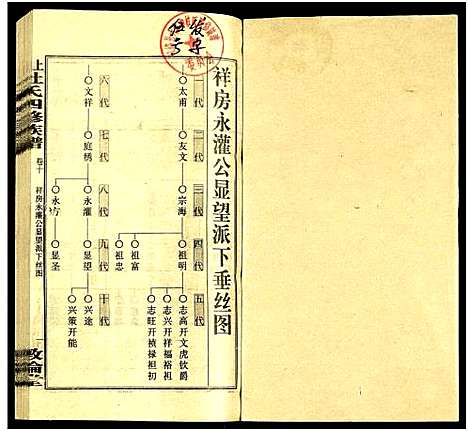 祥房永灌公显望派下垂丝图
一代
太甫
二代
友文
三代
宗海
四代
祖明
祖富
祖忠
五代
志高开文虎钦爵
志兴开祥福裕祖
志旺开祯禄祖初
六代
文祥
七代
庭琇
八代
永灌
永方
九代
显望
显圣
十代
兴途
兴策开能
上杜氏四修族谱
卷十
祥房永灌公显望派下丝图
敦伦堂